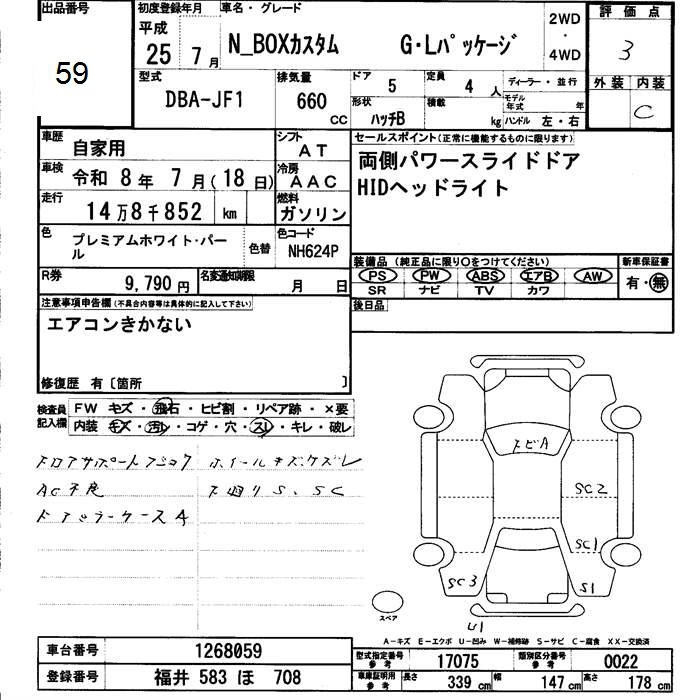 出品番号
59
初度登録年月
平成
25 7月
車名・グレード
N_BOXカスタム G・Lパッケージ
2WD
・
4WD
評価点
3
型式
DBA-JF1
排気量
660
CC
ドア
5
定員
4 人
ディーラー・並行
形状
ハッチB
積載
kg
モデル年式 年
ハンドル 左・右
外装 内装
C
車歴
自家用
シフト
AT
車検
令和 8年 7月(18日)
冷房
AAC
走行
14万8千852 km
燃料
ガソリン
色
プレミアムホワイト・パール
色替
色コード
NH624P
R券
9,790円
名変通知期限
月 日
セールスポイント(正常に機能するものに限ります)
両側パワースライドドア
HIDヘッドライト
装備品(純正品に限り○をつけてください)
PS PW ABS エアB AW
SR ナビ TV カワ
新車保証書
有・無
後日品
注意事項申告欄(不具合内容等は具体的に記入して下さい)
エアコンきかない
修復歴 有〔箇所 〕
検査員記入欄
FW キズ・飛石・ヒビ割・リペア跡・×要
内装 キズ・汚レ・コゲ・穴・スレ・キレ・破レ
ホイールキズケズレ
AC不良
下廻りS、SC
ドアミラーケースA
トビA
SC2
SC1
SC3
S1
U1
スペア
A-キズ E-エクボ U-凹み W-補修跡 S-サビ C-腐食 XX-交換済
車台番号
1268059
登録番号
福井 583 ほ 708
型式指定番号
参考
17075
類別区分番号
参考
0022
車庫証明用
参考
長さ 339cm 幅 147cm 高さ 178cm